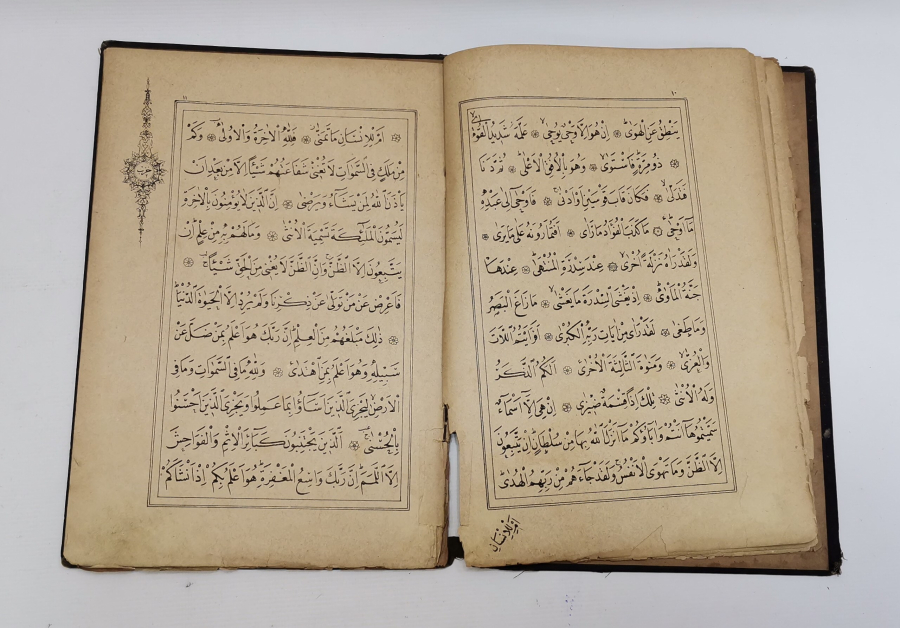 ١٠
يَنْطِقُ عَنِ الْهَوٰى ۞ اِنْ هُوَ اِلَّا وَحْيٌ يُوحٰى ۞ عَلَّمَهُ شَدِيدُ الْقُوٰى
۞ ذُو مِرَّةٍ فَاسْتَوٰى ۞ وَهُوَ بِالْاُفُقِ الْاَعْلٰى ۞ ثُمَّ دَنَا
فَتَدَلّٰى ۞ فَكَانَ قَابَ قَوْسَيْنِ اَوْ اَدْنٰى ۞ فَاَوْحٰى اِلٰى عَبْدِهِ
مَا اَوْحٰى ۞ مَا كَذَبَ الْفُؤَادُ مَا رَاٰى ۞ اَفَتُمَارُونَهُ عَلٰى مَا يَرٰى ۞
وَلَقَدْ رَاٰهُ نَزْلَةً اُخْرٰى ۞ عِنْدَ سِدْرَةِ الْمُنْتَهٰى ۞ عِنْدَهَا
جَنَّةُ الْمَأْوٰى ۞ اِذْ يَغْشَى السِّدْرَةَ مَا يَغْشٰى ۞ مَا زَاغَ الْبَصَرُ
وَمَا طَغٰى ۞ لَقَدْ رَاٰى مِنْ اٰيَاتِ رَبِّهِ الْكُبْرٰى ۞ اَفَرَاَيْتُمُ اللَّاتَ
وَالْعُزّٰى ۞ وَمَنٰوةَ الثَّالِثَةَ الْاُخْرٰى ۞ اَلَكُمُ الذَّكَرُ
وَلَهُ الْاُنْثٰى ۞ تِلْكَ اِذًا قِسْمَةٌ ضِيزٰى ۞ اِنْ هِيَ اِلَّا اَسْمَاءٌ
سَمَّيْتُمُوهَا اَنْتُمْ وَاٰبَاؤُكُمْ مَا اَنْزَلَ اللّٰهُ بِهَا مِنْ سُلْطَانٍ اِنْ يَتَّبِعُونَ
اِلَّا الظَّنَّ وَمَا تَهْوَى الْاَنْفُسُ وَلَقَدْ جَاءَهُمْ مِنْ رَبِّهِمُ الْهُدٰى
اَمْ لِلْاِنْسَانِ
١١
۞ اَمْ لِلْاِنْسَانِ مَا تَمَنّٰى ۞ فَلِلّٰهِ الْاٰخِرَةُ وَالْاُولٰى ۞ وَكَمْ
مِنْ مَلَكٍ فِي السَّمٰوَاتِ لَا تُغْنِي شَفَاعَتُهُمْ شَيْئًا اِلَّا مِنْ بَعْدِ اَنْ
يَأْذَنَ اللّٰهُ لِمَنْ يَشَاءُ وَيَرْضٰى ۞ اِنَّ الَّذِينَ لَا يُؤْمِنُونَ بِالْاٰخِرَةِ
لَيُسَمُّونَ الْمَلٰئِكَةَ تَسْمِيَةَ الْاُنْثٰى ۞ وَمَا لَهُمْ بِهِ مِنْ عِلْمٍ اِنْ
يَتَّبِعُونَ اِلَّا الظَّنَّ وَاِنَّ الظَّنَّ لَا يُغْنِي مِنَ الْحَقِّ شَيْئًا ۞
فَاَعْرِضْ عَنْ مَنْ تَوَلّٰى عَنْ ذِكْرِنَا وَلَمْ يُرِدْ اِلَّا الْحَيٰوةَ الدُّنْيَا
۞ ذٰلِكَ مَبْلَغُهُمْ مِنَ الْعِلْمِ اِنَّ رَبَّكَ هُوَ اَعْلَمُ بِمَنْ ضَلَّ عَنْ
سَبِيلِهِ وَهُوَ اَعْلَمُ بِمَنِ اهْتَدٰى ۞ وَلِلّٰهِ مَا فِي السَّمٰوَاتِ وَمَا فِي
الْاَرْضِ لِيَجْزِيَ الَّذِينَ اَسَاؤُا بِمَا عَمِلُوا وَيَجْزِيَ الَّذِينَ اَحْسَنُوا
بِالْحُسْنٰى ۞ اَلَّذِينَ يَجْتَنِبُونَ كَبَائِرَ الْاِثْمِ وَالْفَوَاحِشَ
اِلَّا اللَّمَمَ اِنَّ رَبَّكَ وَاسِعُ الْمَغْفِرَةِ هُوَ اَعْلَمُ بِكُمْ اِذْ اَنْشَاَكُمْ
حزب